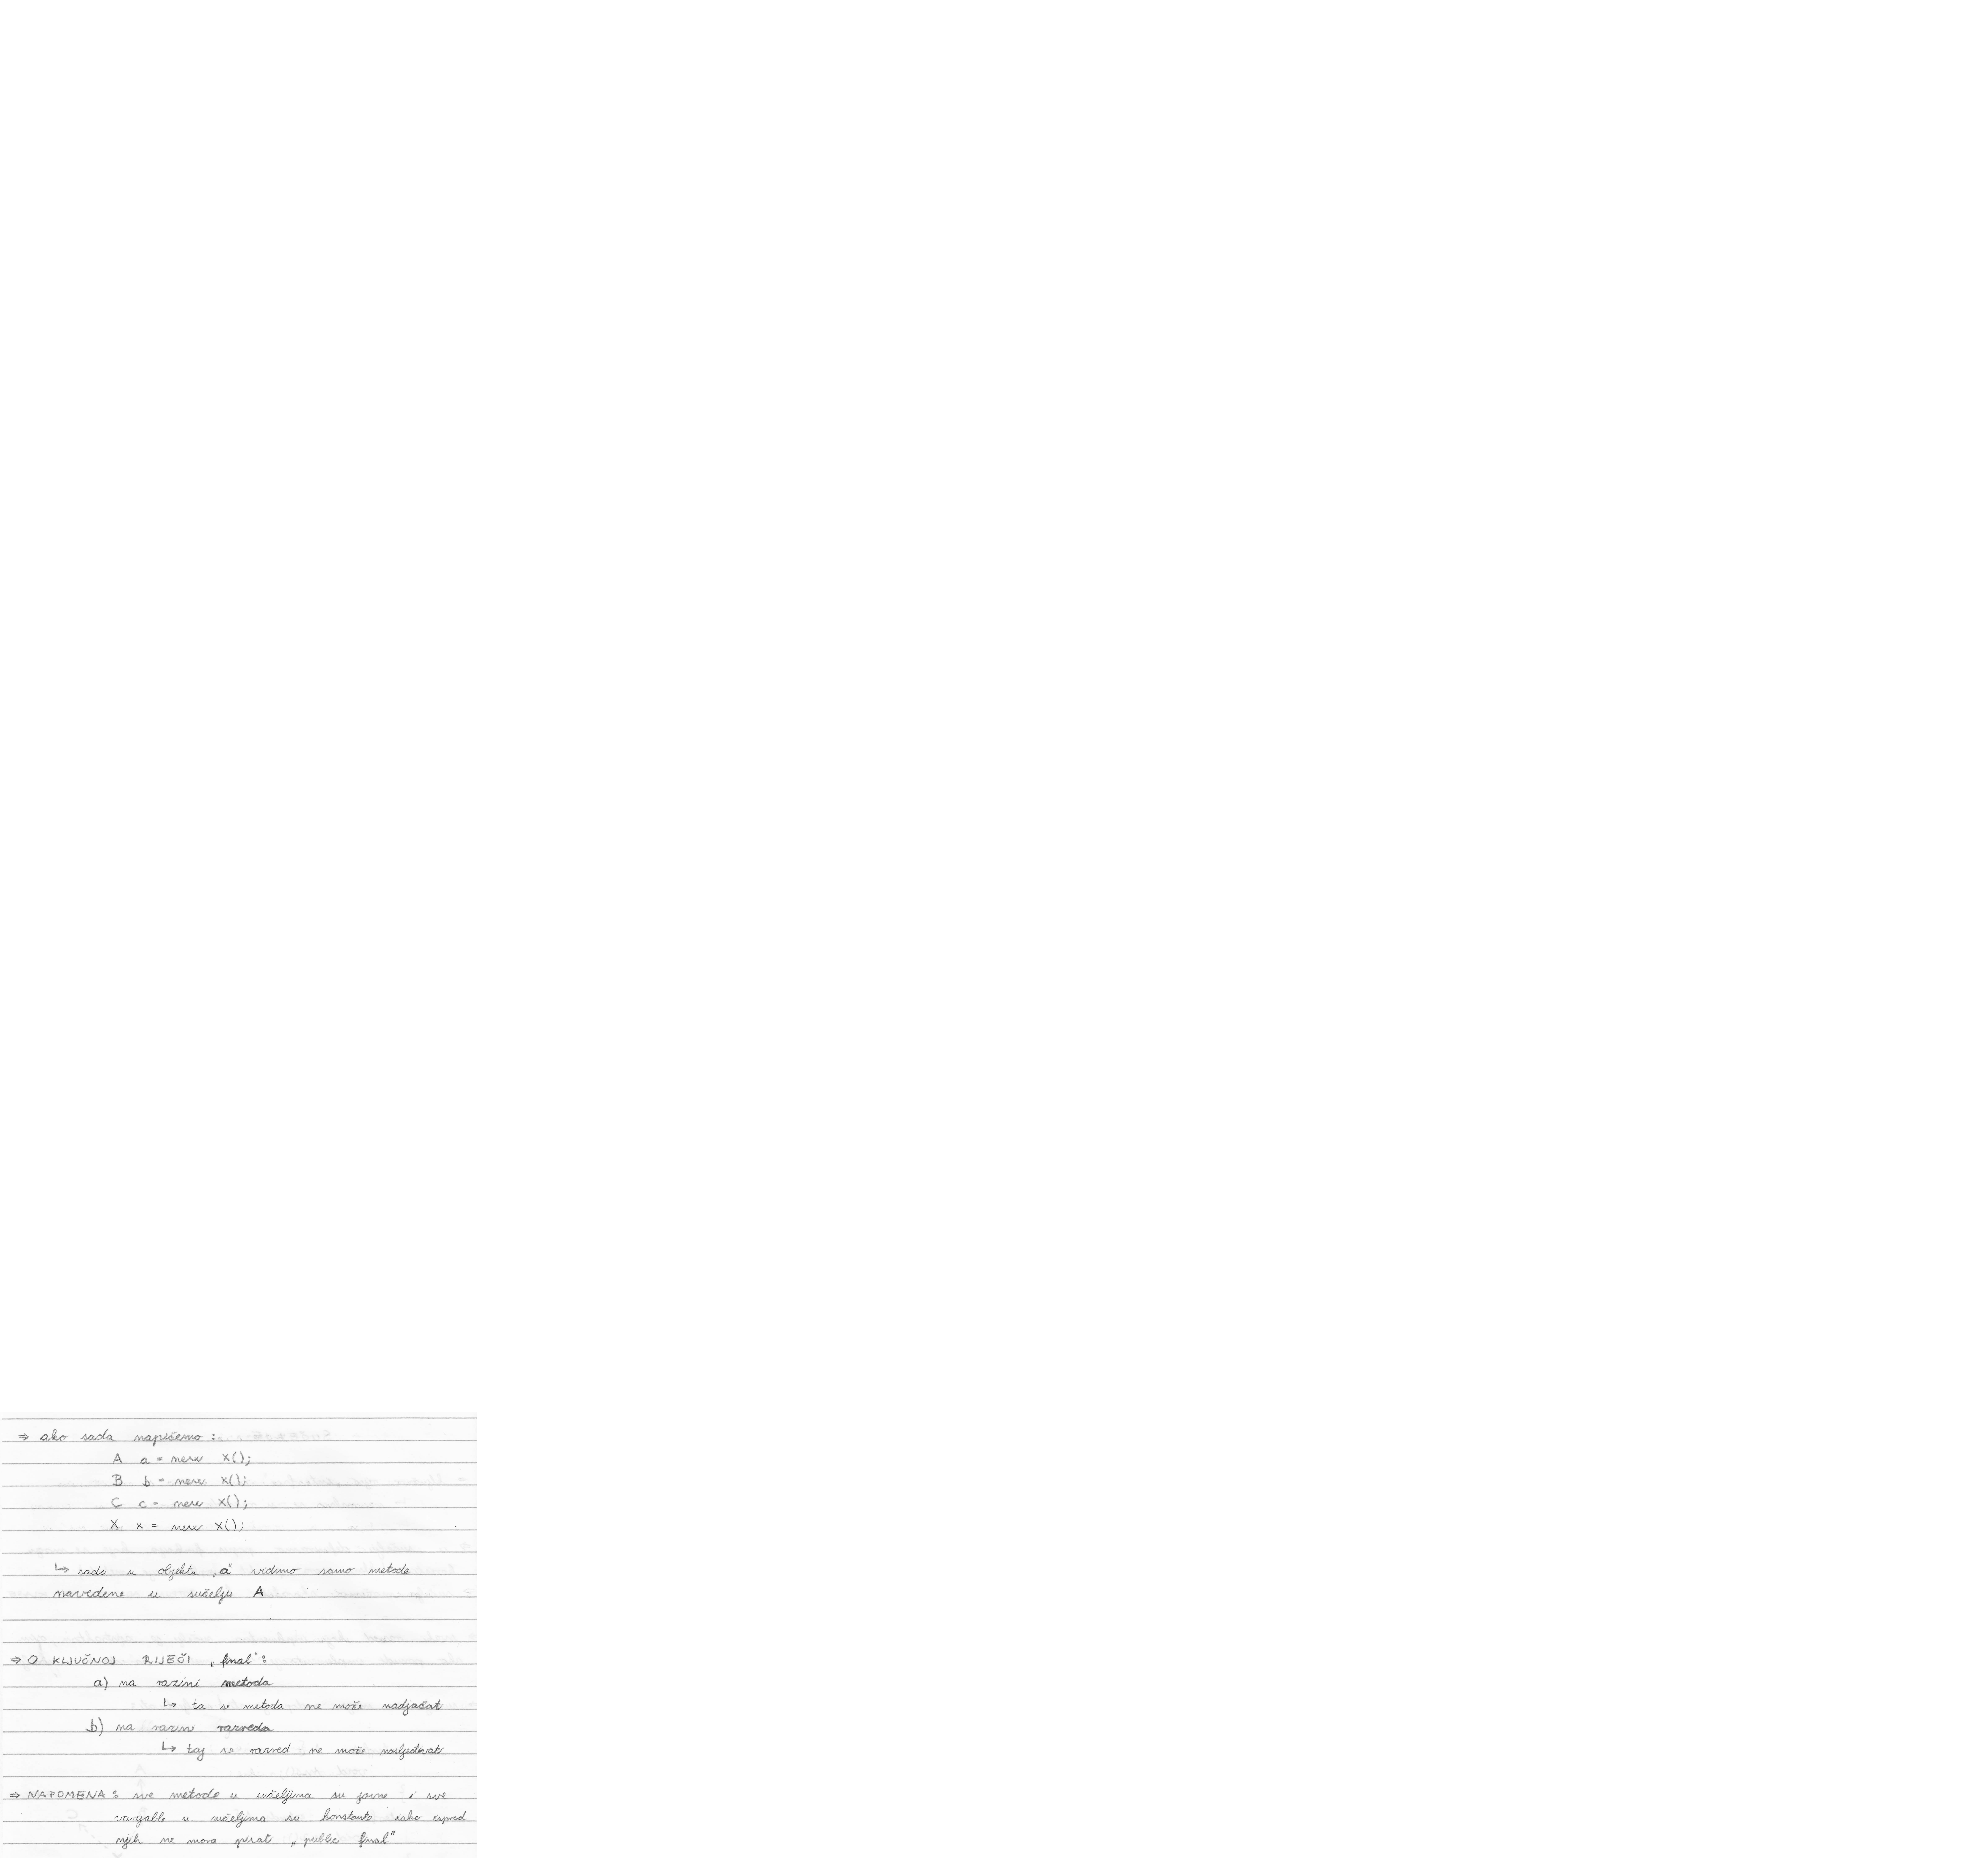 ⇒ ako sada napišemo :
A a = new X();
B b = new X();
C c = new X();
X x = new X();
↳ sada u objektu „a" vidimo samo metode
navedene u sučelju A
⇒ O KLJUČNOJ RIJEČI „final":
a) na razini metoda
↳ ta se metoda ne može nadjačat
b) na razini razreda
↳ taj se razred ne može nasljeđivat
⇒ NAPOMENA : sve metode u sučeljima su javne i sve
varijable u sučeljima su konstante iako ispred
njih ne mora pisat „public final"